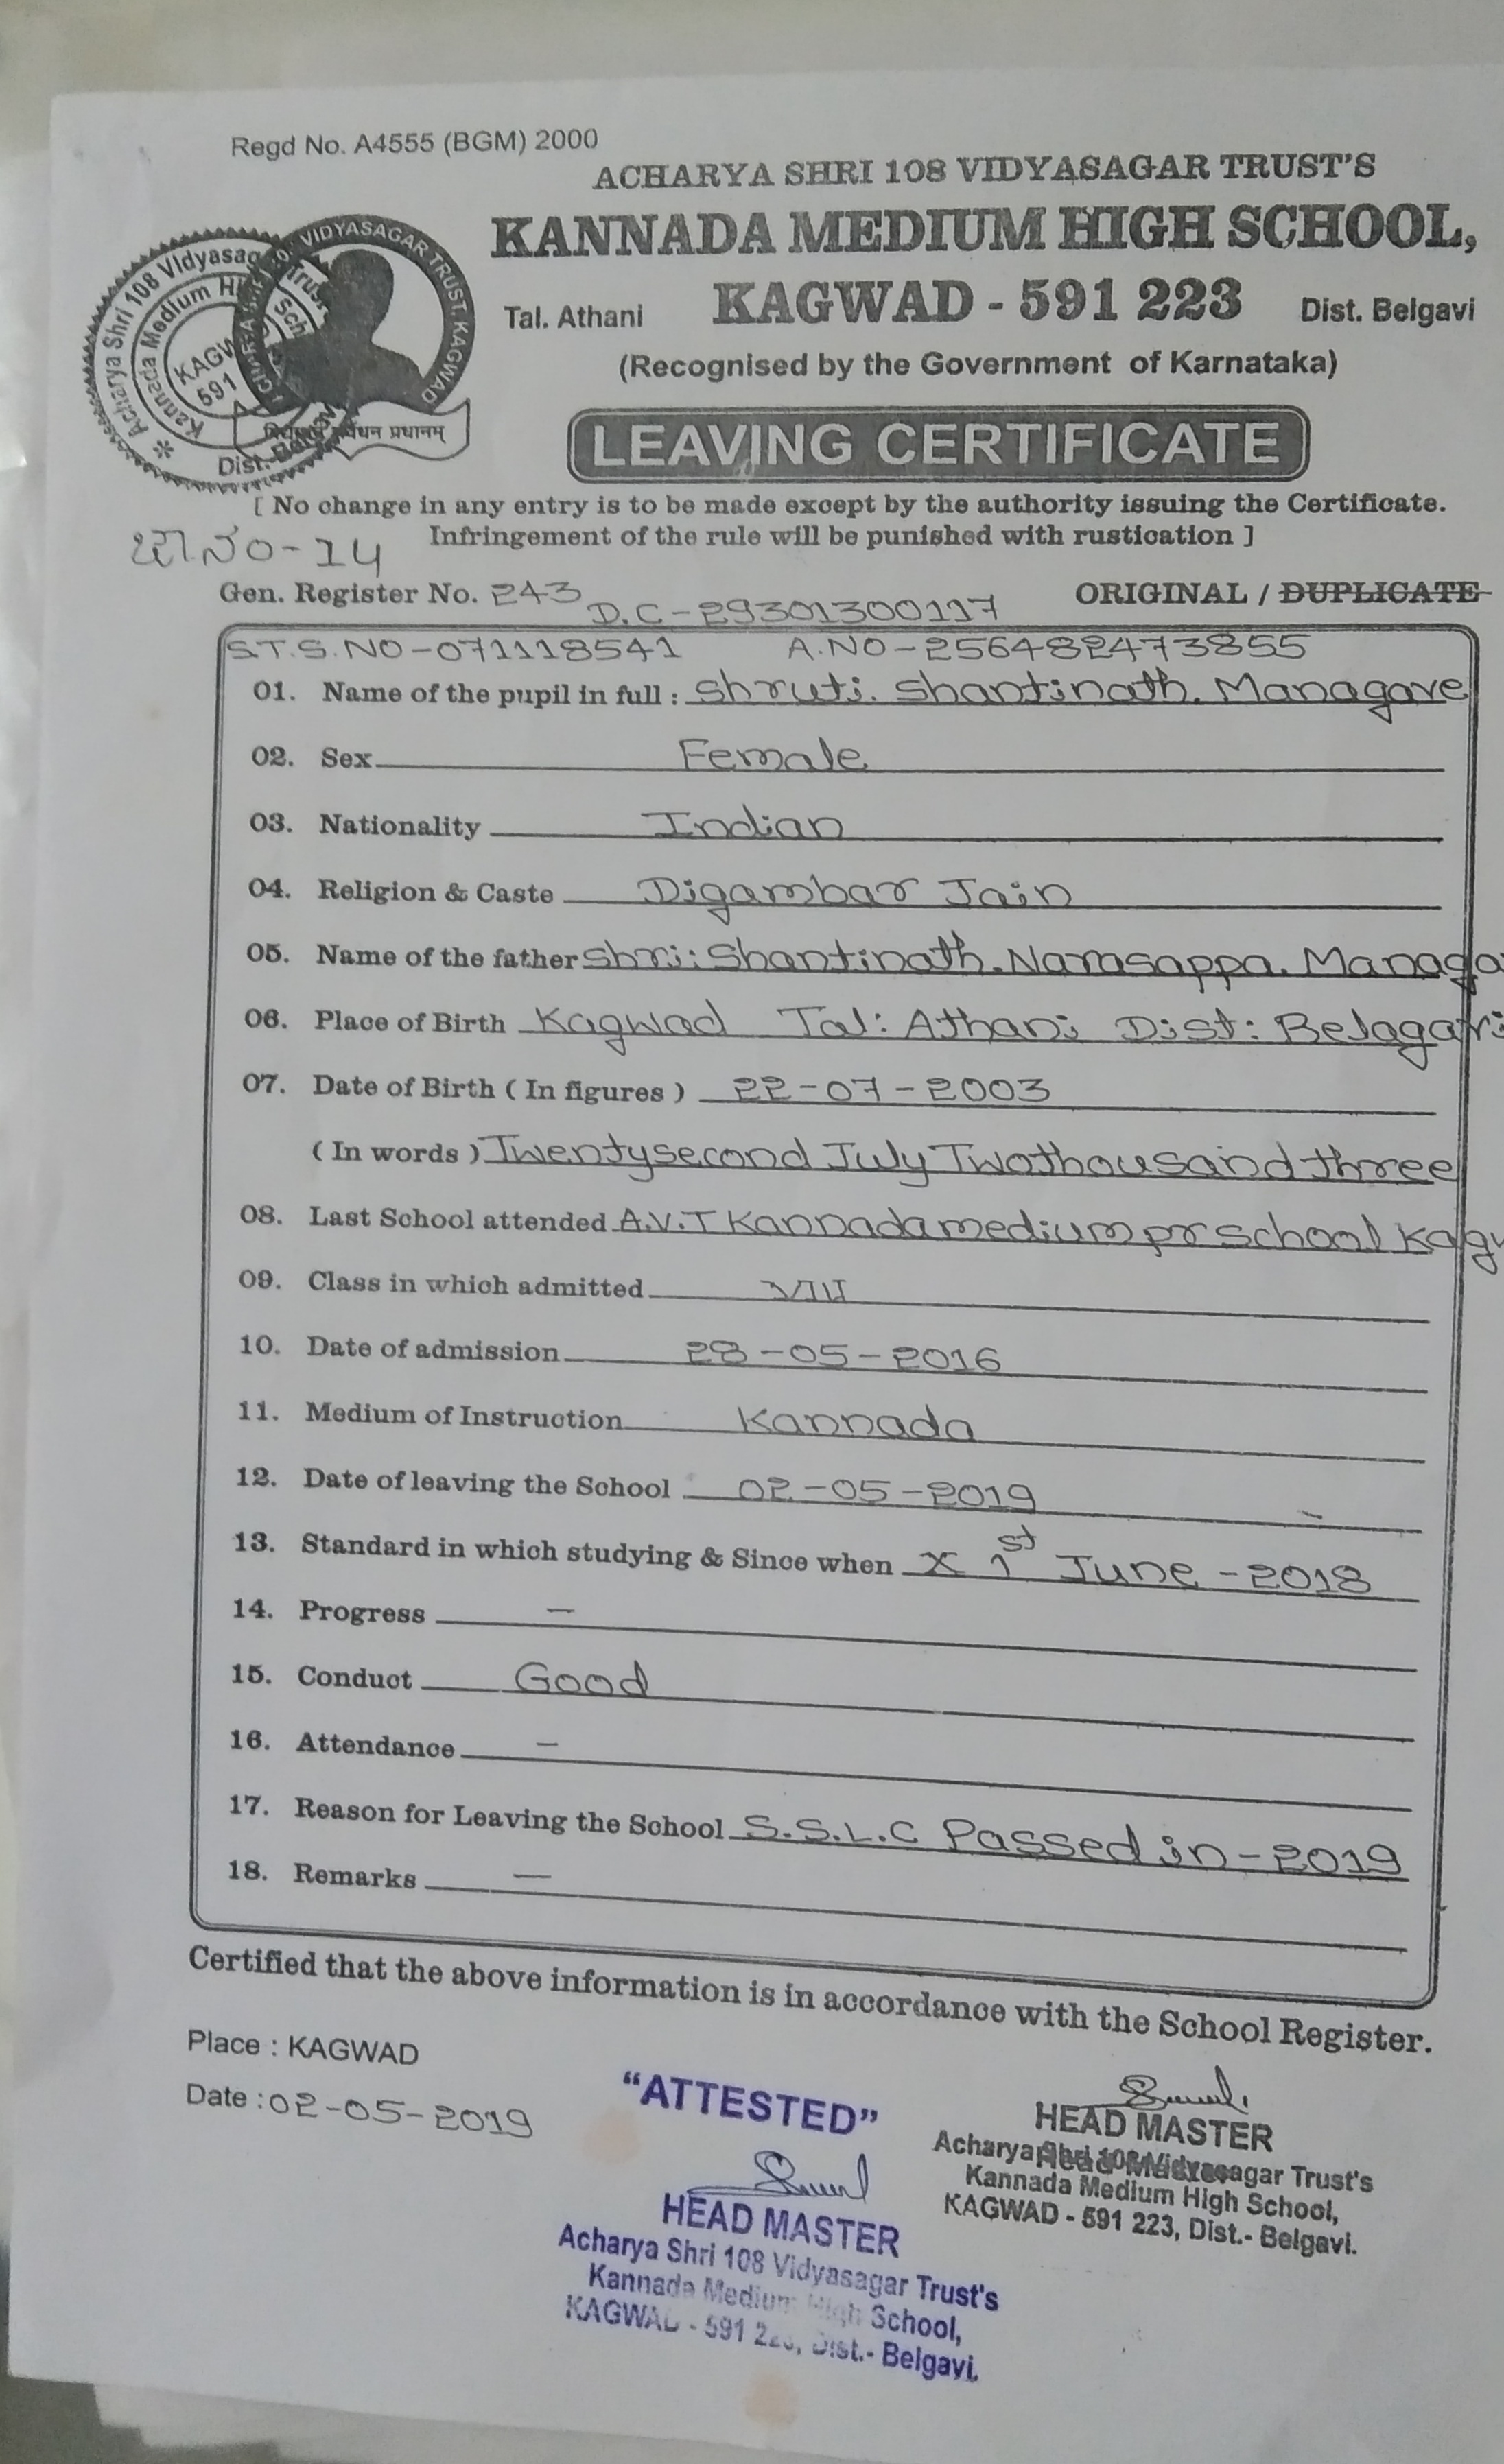 Regd No. A4555 (BGM) 2000
ACHARYA SHRI 108 VIDYASAGAR TRUST'S
KANNADA MEDIUM HIGH SCHOOL,
Tal. Athani KAGWAD - 591 223 Dist. Belgavi
(Recognised by the Government of Karnataka)
LEAVING CERTIFICATE
[ No change in any entry is to be made except by the authority issuing the Certificate.
Infringement of the rule will be punished with rustication ]
Gen. Register No. 243 ORIGINAL / DUPLICATE
D.C-29301300117
S.T.S.NO-071118541 A.NO-256482473855
01. Name of the pupil in full : Shruti. Shantinath. Managave
02. Sex Female
03. Nationality Indian
04. Religion & Caste Digambar Jain
05. Name of the father Shri: Shantinath. Narasappa. Managa
06. Place of Birth Kagwad Tal: Athani Dist: Belagavi
07. Date of Birth ( In figures ) 22-07-2003
( In words ) Twentysecond July Twothousand three
08. Last School attended A.V.T Kannada medium pr school Kagw
09. Class in which admitted VIII
10. Date of admission 28-05-2016
11. Medium of Instruction Kannada
12. Date of leaving the School 02-05-2019
13. Standard in which studying & Since when X 1st June-2018
14. Progress —
15. Conduct Good
16. Attendance —
17. Reason for Leaving the School S.S.L.C Passed in-2019
18. Remarks —
Certified that the above information is in accordance with the School Register.
Place : KAGWAD
Date : 02-05-2019
"ATTESTED"
HEAD MASTER
Acharya Shri 108 Vidyasagar Trust's
Kannada Medium High School,
KAGWAD - 591 223, Dist.- Belgavi.
HEAD MASTER
Acharya Shri 108 Vidyasagar Trust's
Kannada Medium High School,
KAGWAD - 591 223, Dist.- Belgavi.